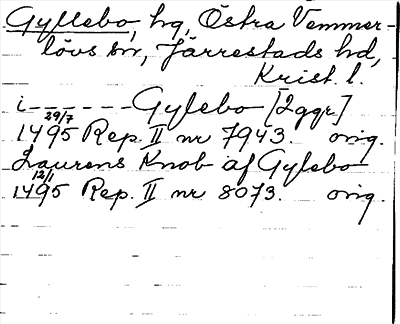 Gyllebo, hg, Östra Vemmer-
lövs sn, Järrestads hd,
Krist. l.
i------Gylebo [2ggr]
29/7
1495 Rep. II nr 7943. orig.
Laurens Knob af Gylebo
12/1
1495 Rep. II nr 8073. orig.